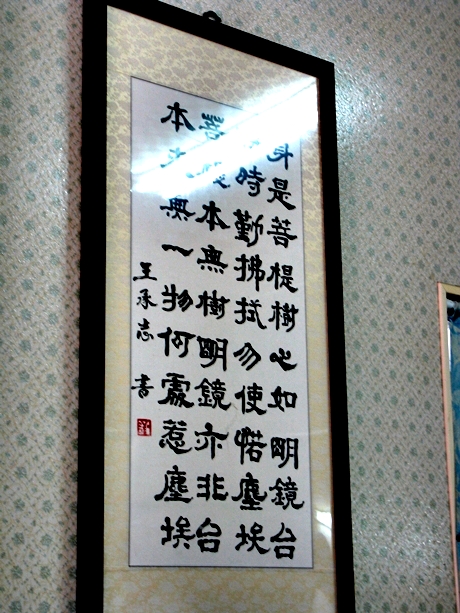 身是菩提樹心如明鏡台
時勤拂拭勿使惹塵埃
菩提本無樹明鏡亦非台
本來無一物何處惹塵埃
王承志 書